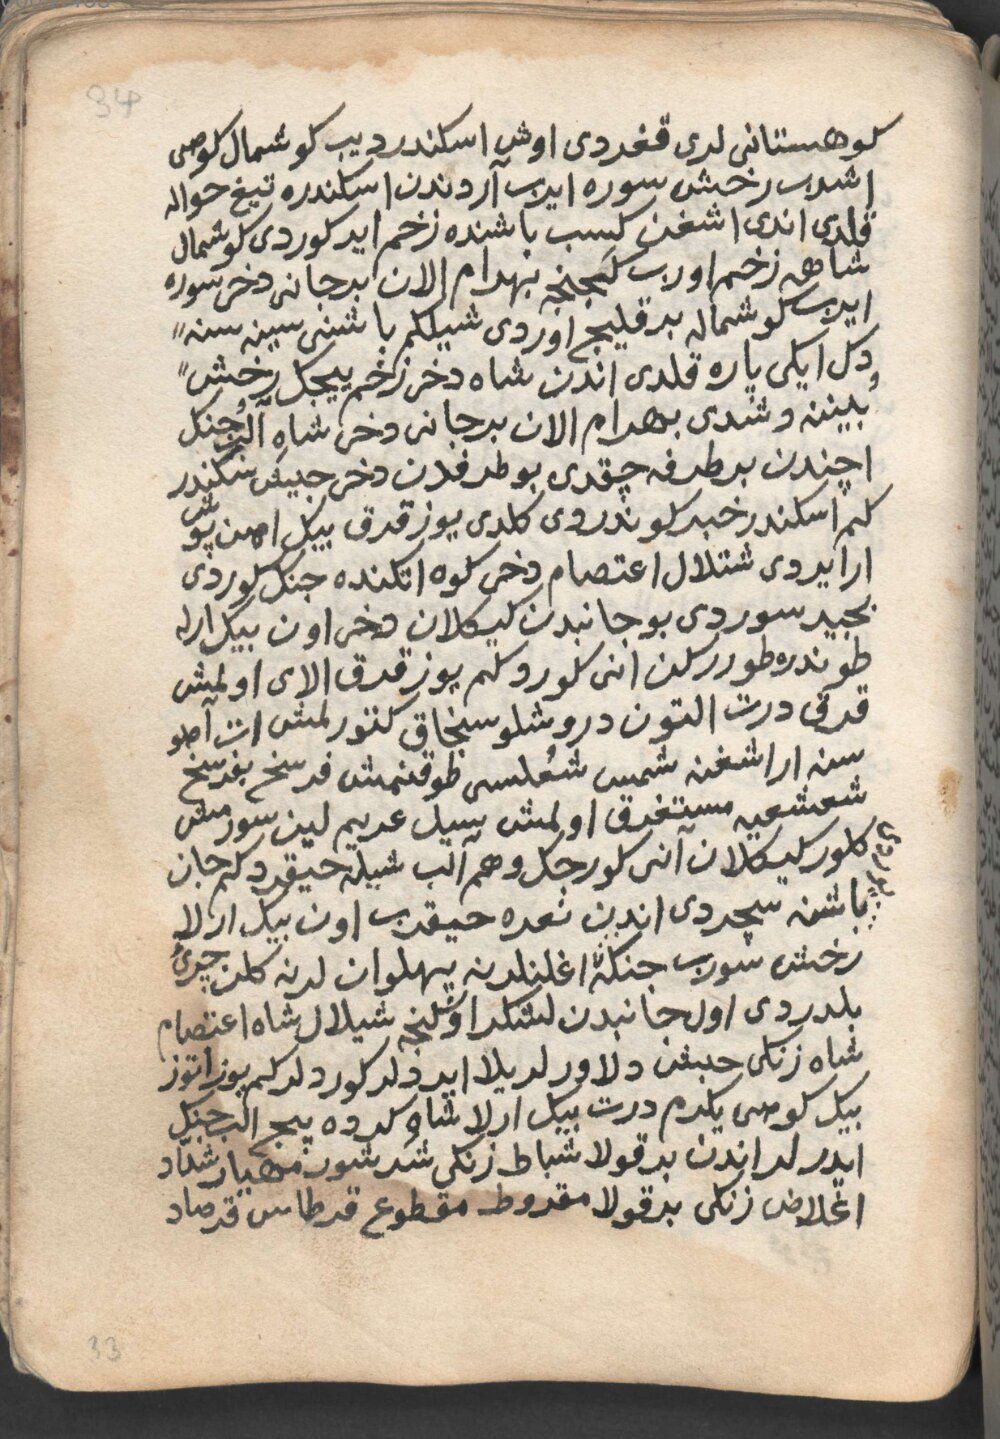 34
كوهستانی لری قغردی اوش اسكندر دیب كوشمال كوصی
اشدب رخش سوره ایرب آردندن اسكندره تیغ حواله
قلدی اندی اشغن كسب باشنده زخم ایر كوردی كوشمال
شاهه زخم اورب كلنجه بهرام الان برجانی دخی سوره
ایرب كوشماله بر قلیج اوردی شیلكم باشنی سینه سنه
دكل ایكی پاره قلدی اندن شاه دخی زخم ییجكل رخش
بینه دشدی بهرام الان برجانی دخی شاه آلب جنك
اچندن بر طرفه چقدی بو طرفدن دخی جیش سكندر
كم اسكندر خبر كوندروی كلدی یوز قرق بیكل اهن پوش
ارایردی شتلال اعتصام دخی كوه اتكنده جنك كوردی
بجیر سوردی بو جانبدن لیكلان دخی اون بیك ارله
طونده طوررلن انی كوردكم یوز قرق الای اولمش
قرق درت التون دروشلو سنجاق كتورلمش ات آطو
سنه اراشغنه شمس شعلسی طوقنمش فرسخ بفرسخ
شعشعیه مستغرق اولمش سیل عریم لین سورمش
كلور لیكلان آنی كوررجك وهم آلب شیله حیقردكم جان
باشنه سچردی اندن نعره حیقرب اون بیك ارلا
رخش سورب جنكه اغلنلرنه پهلوان لرنه كلن چری
بلدردی اول جانبدن لشكر اوكنجه شیلال شاه اعتصام
شاه زنكی حبش دلاورلریلا ایردلر كوردلر كم یوز اتوز
بیك كوصی یكرم درت بیك ارلا شاوكرده ییج الب جنك
ایدرلر اندن بر قولا شباط زنكی شر شور مهیار شداد
اغلاض زنكی بر قولا مقروط مقطوع قرطاس قرصاد
33